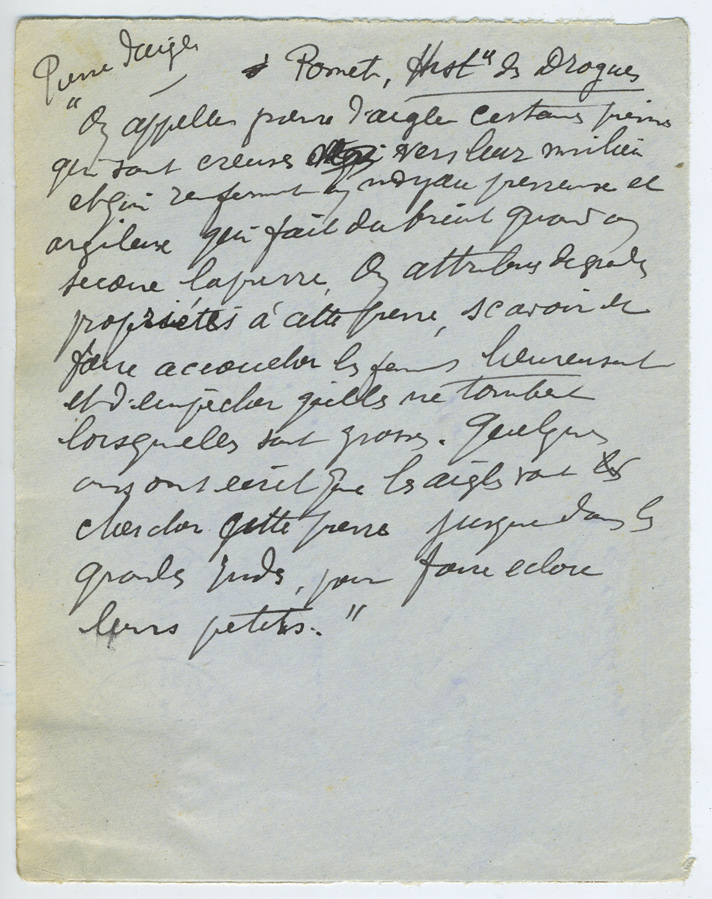 Pierre d'aigle
Pomet, Hist" des Drogues
"On appelles pierre d'aigle certaines pierres
qui sont creuses vers leur milieu
et qui renferment un noyau pierreuse et
argileuse qui fait du bruit quand on
secoue la pierre, On attribue de grandes
propriétés à cette pierre, scavoir de
faire accoucher les femmes heureusement
et d'empêcher qu'elles ne tombent
lorsquelles sont grosses. Quelques
uns ont écrit que les aigles vont
chercher cette pierre jusque dans les
grandes Indes, pour faire eclore
leurs petits."